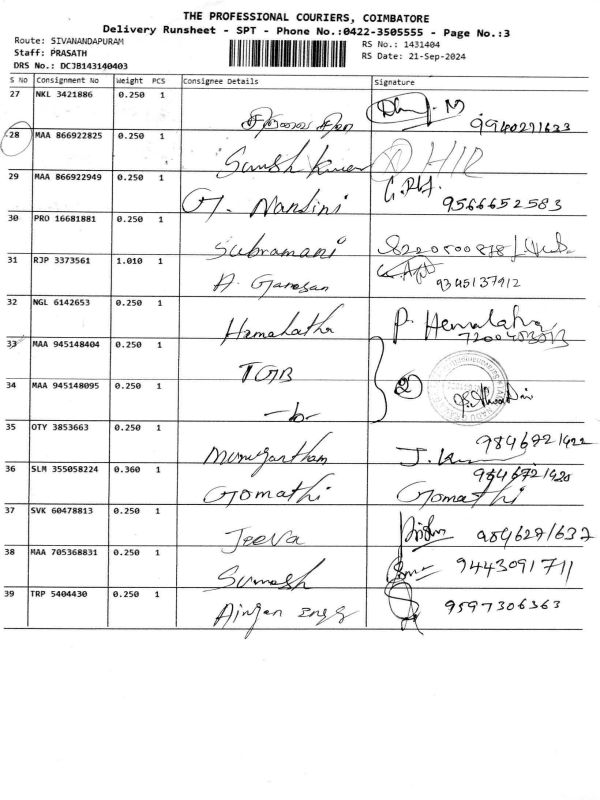 THE PROFESSIONAL COURIERS, COIMBATORE
Delivery Runsheet - SPT - Phone No.:0422-3505555 - Page No.:3
Route: SIVANANDAPURAM
Staff: PRASATH
DRS No.: DCJB143140403
RS No.: 1431404
RS Date: 21-Sep-2024
S No Consignment No Weight PCS Consignee Details Signature
27 NKL 3421886 0.250 1 9940291633
28 MAA 866922825 0.250 1
29 MAA 866922949 0.250 1 G. Nandini 9566652583
30 PRO 16681881 0.250 1 Subramani
31 RJP 3373561 1.010 1 A. Ganesan 9345137912
32 NGL 6142653 0.250 1 Hemalatha P. Hemalatha
33 MAA 945148404 0.250 1 TGB
34 MAA 945148095 0.250 1 2
35 OTY 3853663 0.250 1 9846721422
36 SLM 355058224 0.360 1 Gomathi Gomathi
37 SVK 60478813 0.250 1 Jeeva
38 MAA 705368831 0.250 1 Sumesh 9443091711
39 TRP 5404430 0.250 1 9597306363